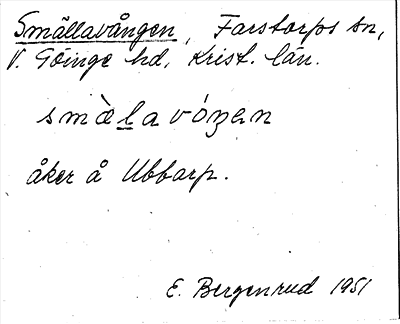 Smällavången, Farstorps sn,
V. Göinge hd, Krist. län.
smὰlavóŋen
åker å Ubbarp.
E. Bergenrud 1951